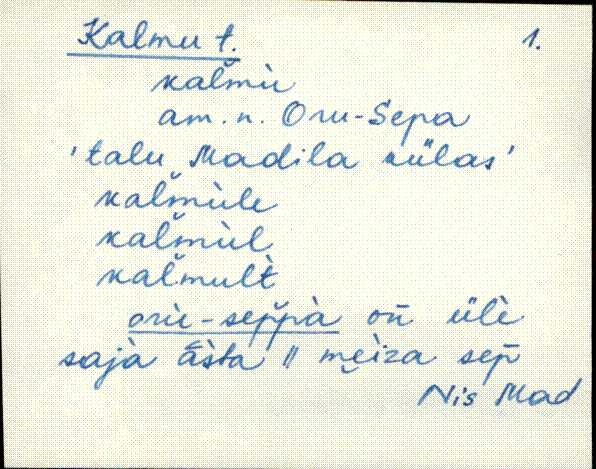 Kalmu t. 1.
kal̆mù
am. n. Oru-Sepa
'talu Madila külas'
kal̆mùle
kal̆mùl
kal̆mult̀
orù-sep̆pà on̄ ülè
sajà āsta ‖ mĕiza sep̄
Nis Mad